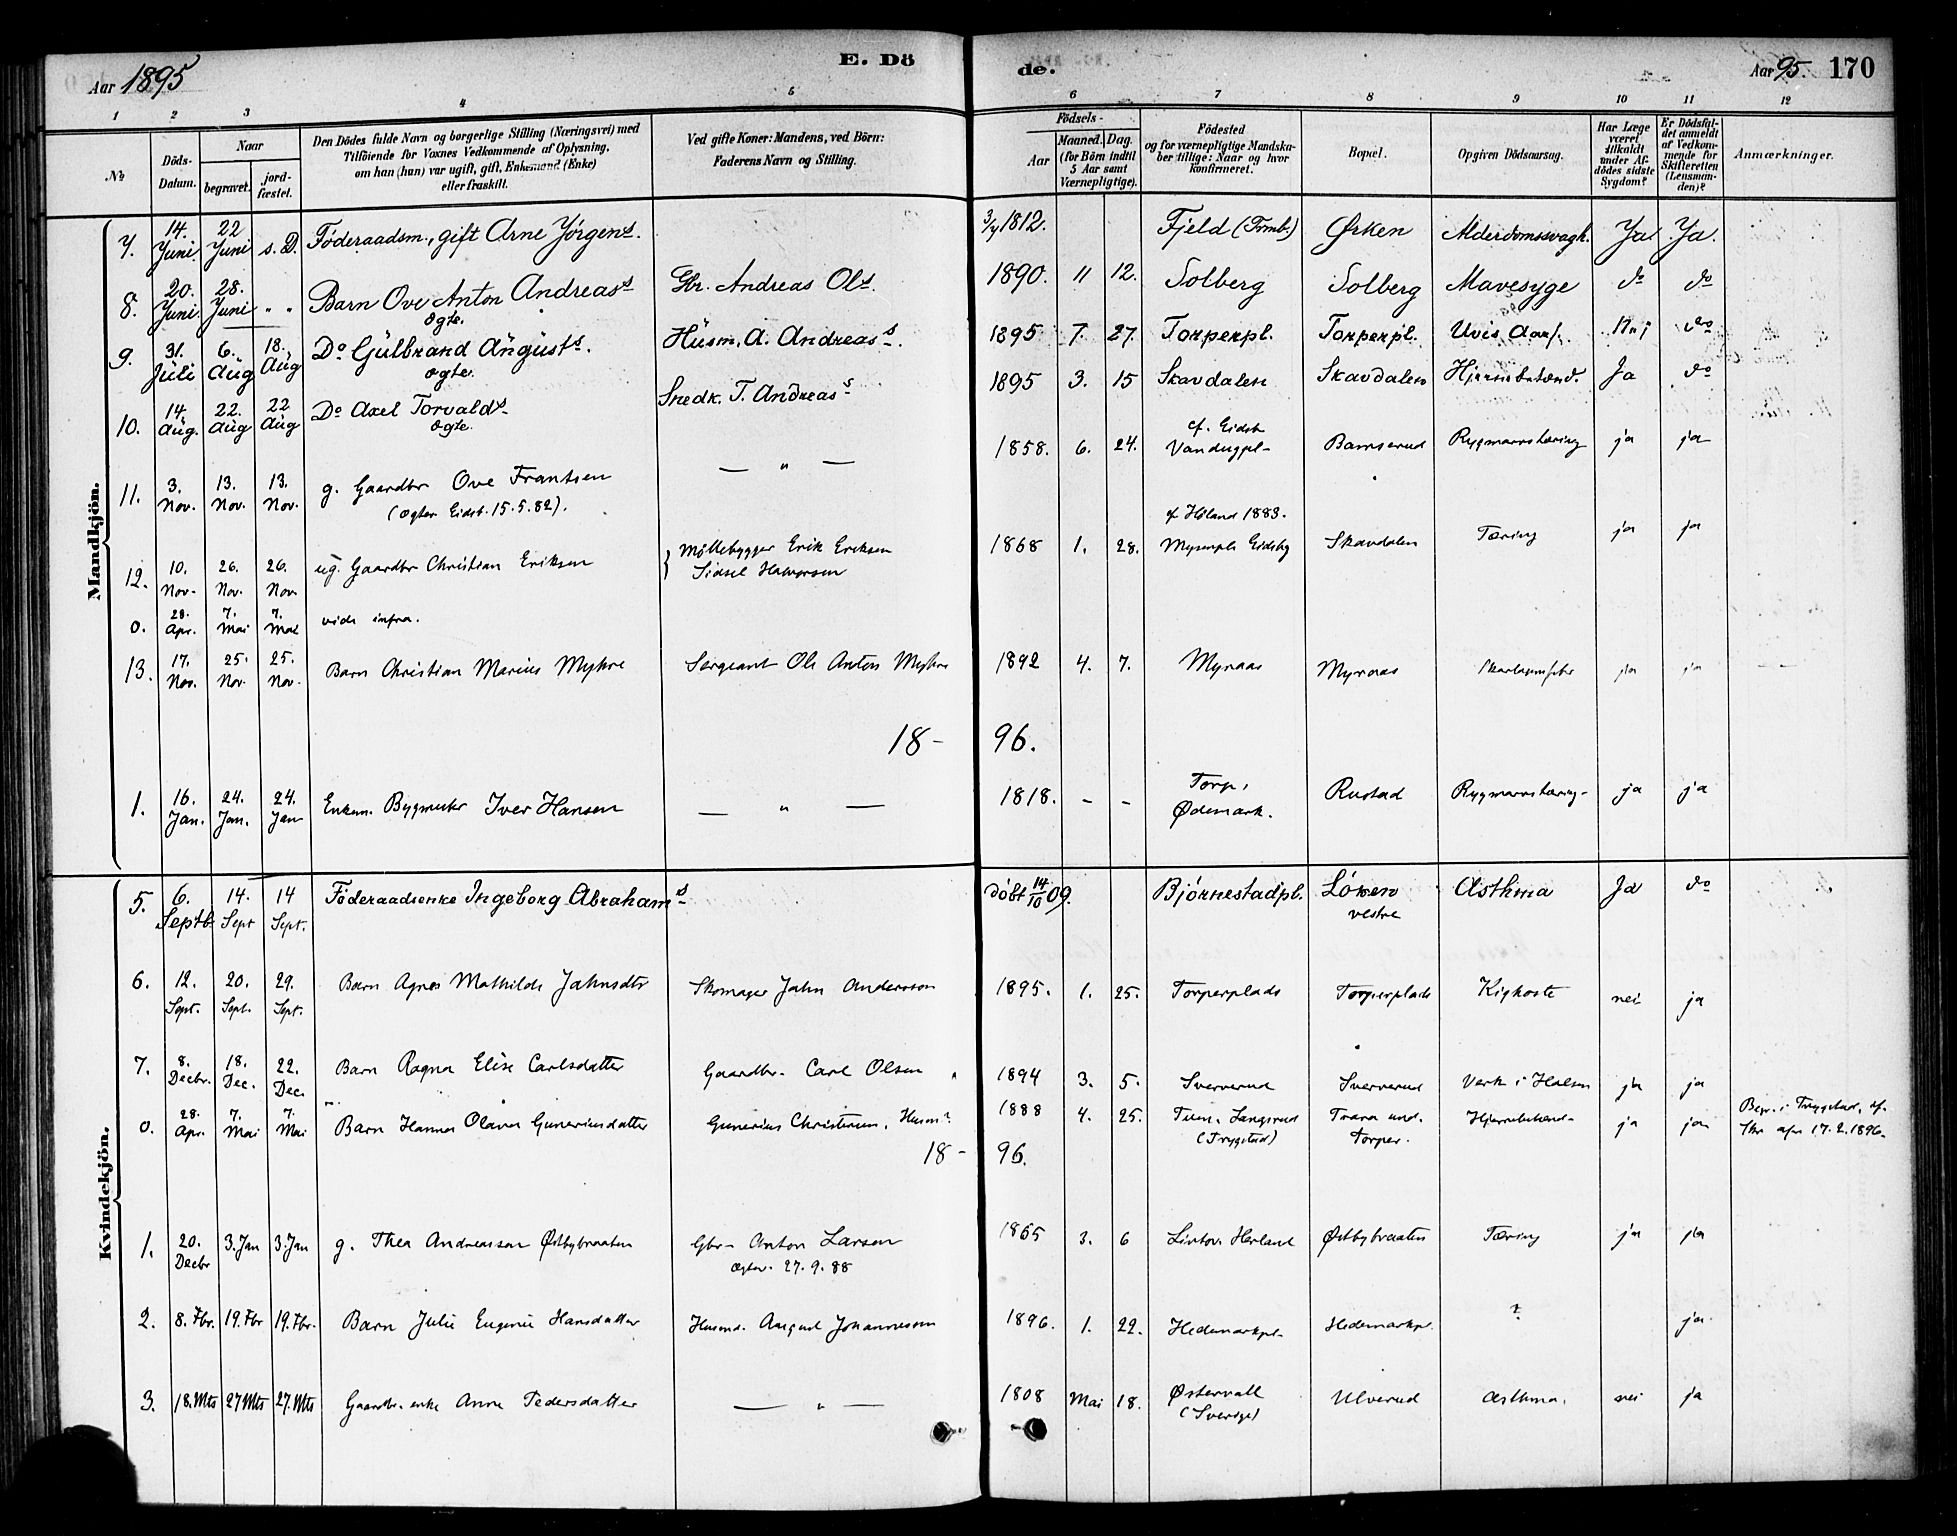 Aar 1895
E. Dö
de.
Aar 95. 170
1 2 3 4 5 6 7 8 9 10 11 12
No
Döds-Datum.
Naar
begravet.
jord-fæstet.
Den Dödes fulde Navn og borgerlige Stilling (Næringsvei) med
Tilföiende for Voxnes Vedkommende af Oplysning,
om han (hun) var ugift, gift, Enkemand (Enke)
eller fraskilt.
Ved gifte Koner: Mandens, ved Börn:
Faderens Navn og Stilling.
Födsels-
Aar
Maaned. Dag.
(for Börn indtil
5 Aar samt
Værnepligtige).
Födested
og for værnepligtige Mandska-
ber tillige: Naar og hvor
konfirmeret.
Bopæl.
Opgiven Dödsaarsag.
Har Læge
været
tilkaldt
under Af-
dödes sidste
Sygdom?
Er Dödsfal-
det anmeldt
af Vedkom-
mende for
Skifteretten
(Lensman-
den)?
Anmærkninger.
Mandkjön.
7. 14. Juni 22 Juni s. D. Föderaadsm., gift Arne Jörgens. 3/4 1812. Fjeld (Tomb.) Ørken Alderdomssvagh. Ja. Ja.
8. 20. Juni 28. Juni " " Barn Ove Anton Andreass Gbr. Andreas Ols. 1890. 11 12. Solberg Solberg Mavesyge do do
ogte.
9. 31. Juli 6. Aug 18. Aug Do Gulbrand Augusts. Husm. A. Andreass. 1895 7. 27. Torperpl. Torperpl. Uvis Aars. Nei do
ogte.
10. 14. Aug. 22. Aug 22 Aug Do Axel Torvalds Snedk. T. Andreass 1895 3. 15 Skavdalen Skavdalen Hjernebetænd. Ja do
ogte.
11. 3. Nov. 13. Nov. 13. Nov. g. Gaardbr Ove Frantsen — " — 1858. 6. 24. cf. Eidsb Bamserud Rygmarvstæring ja ja
(ogter Eidsb. 15.5.82).
12. 10. Nov. 26. Nov. 26. Nov ug. Gaardbr Christian Eriksen Möllebygger Erik Eriksen 1868 1. 28. cf Høland 1883. Mysenpls Eidsbg Skavdalen Tæring ja ja
Sidsel Halvorsen
0. 28. Apr. 7. Mai 7. Mai vide infra.
13. 17. Nov. 25. Nov. 25. Nov. Barn Christian Marius Myhre Sergeant Ole Anton Myhre 1892 4. 7. Myraas Myraas Skarlagensfeber ja ja
18- 96.
1. 16. Jan. 24. Jan. 24. Jan Enkem. Bygmester Iver Hansen — " — 1818. - - Torp, Ødemark. Rustad Rygmarvstæring- ja ja
Kvindekjön.
5. 6. Septb. 14. Sept 14 Sept. Föderaadsenke Ingeborg Abrahams Döbt 14/10 09. Bjørnestadpl. Löken vestre Asthma Ja do
6. 12. Sept. 20. Sept. 29. Sept. Barn Agnes Mathilde Jahnsdtr Skomager Jahn Andersson 1895. 1. 25. Torperplads Torperplads Kighoste nei ja
7. 8. Decbr. 18. Dec. 22. Dec. Barn Ragna Elise Carlsdatter Gaardbr. Carl Olsen 1894 3. 5. Sververud Sververud Verk i Halsen ja ja
0. 28. Apr. 7. Mai 7. Mai Barn Hanna Olava Guneriusdatter Gunerius Christensen, Husm. 1888 4. 25. Langsrud (Trygstad) Trara und. Torper. Hjernebetænd- ja ja Begr. i Trygstad, cf. Skr af 17.2.1896.
18- 96.
1. 20. Decbr 3. Jan 3. Jan g. Thea Andreassen Østbybraaten Gbr- Anton Larsen 1865 3. 6 Herland Østbybraaten Tæring ja ja
Ægtev. 27.9.88
2. 8. Fbr. 19. Fbr 19. Fbr. Barn Julie Eugenie Hansdatter Husmd. August Johannessen 1896. 1. 22. Hedemarkpl- Hedemarkpl. ? ja.
3. 18. Mts 27 Mts 27. Mts Gaardbr. enke Anne Pedersdatter — " — 1808 Mai 18. Østervall (Sverige) Ulverud Asthma. nei ja